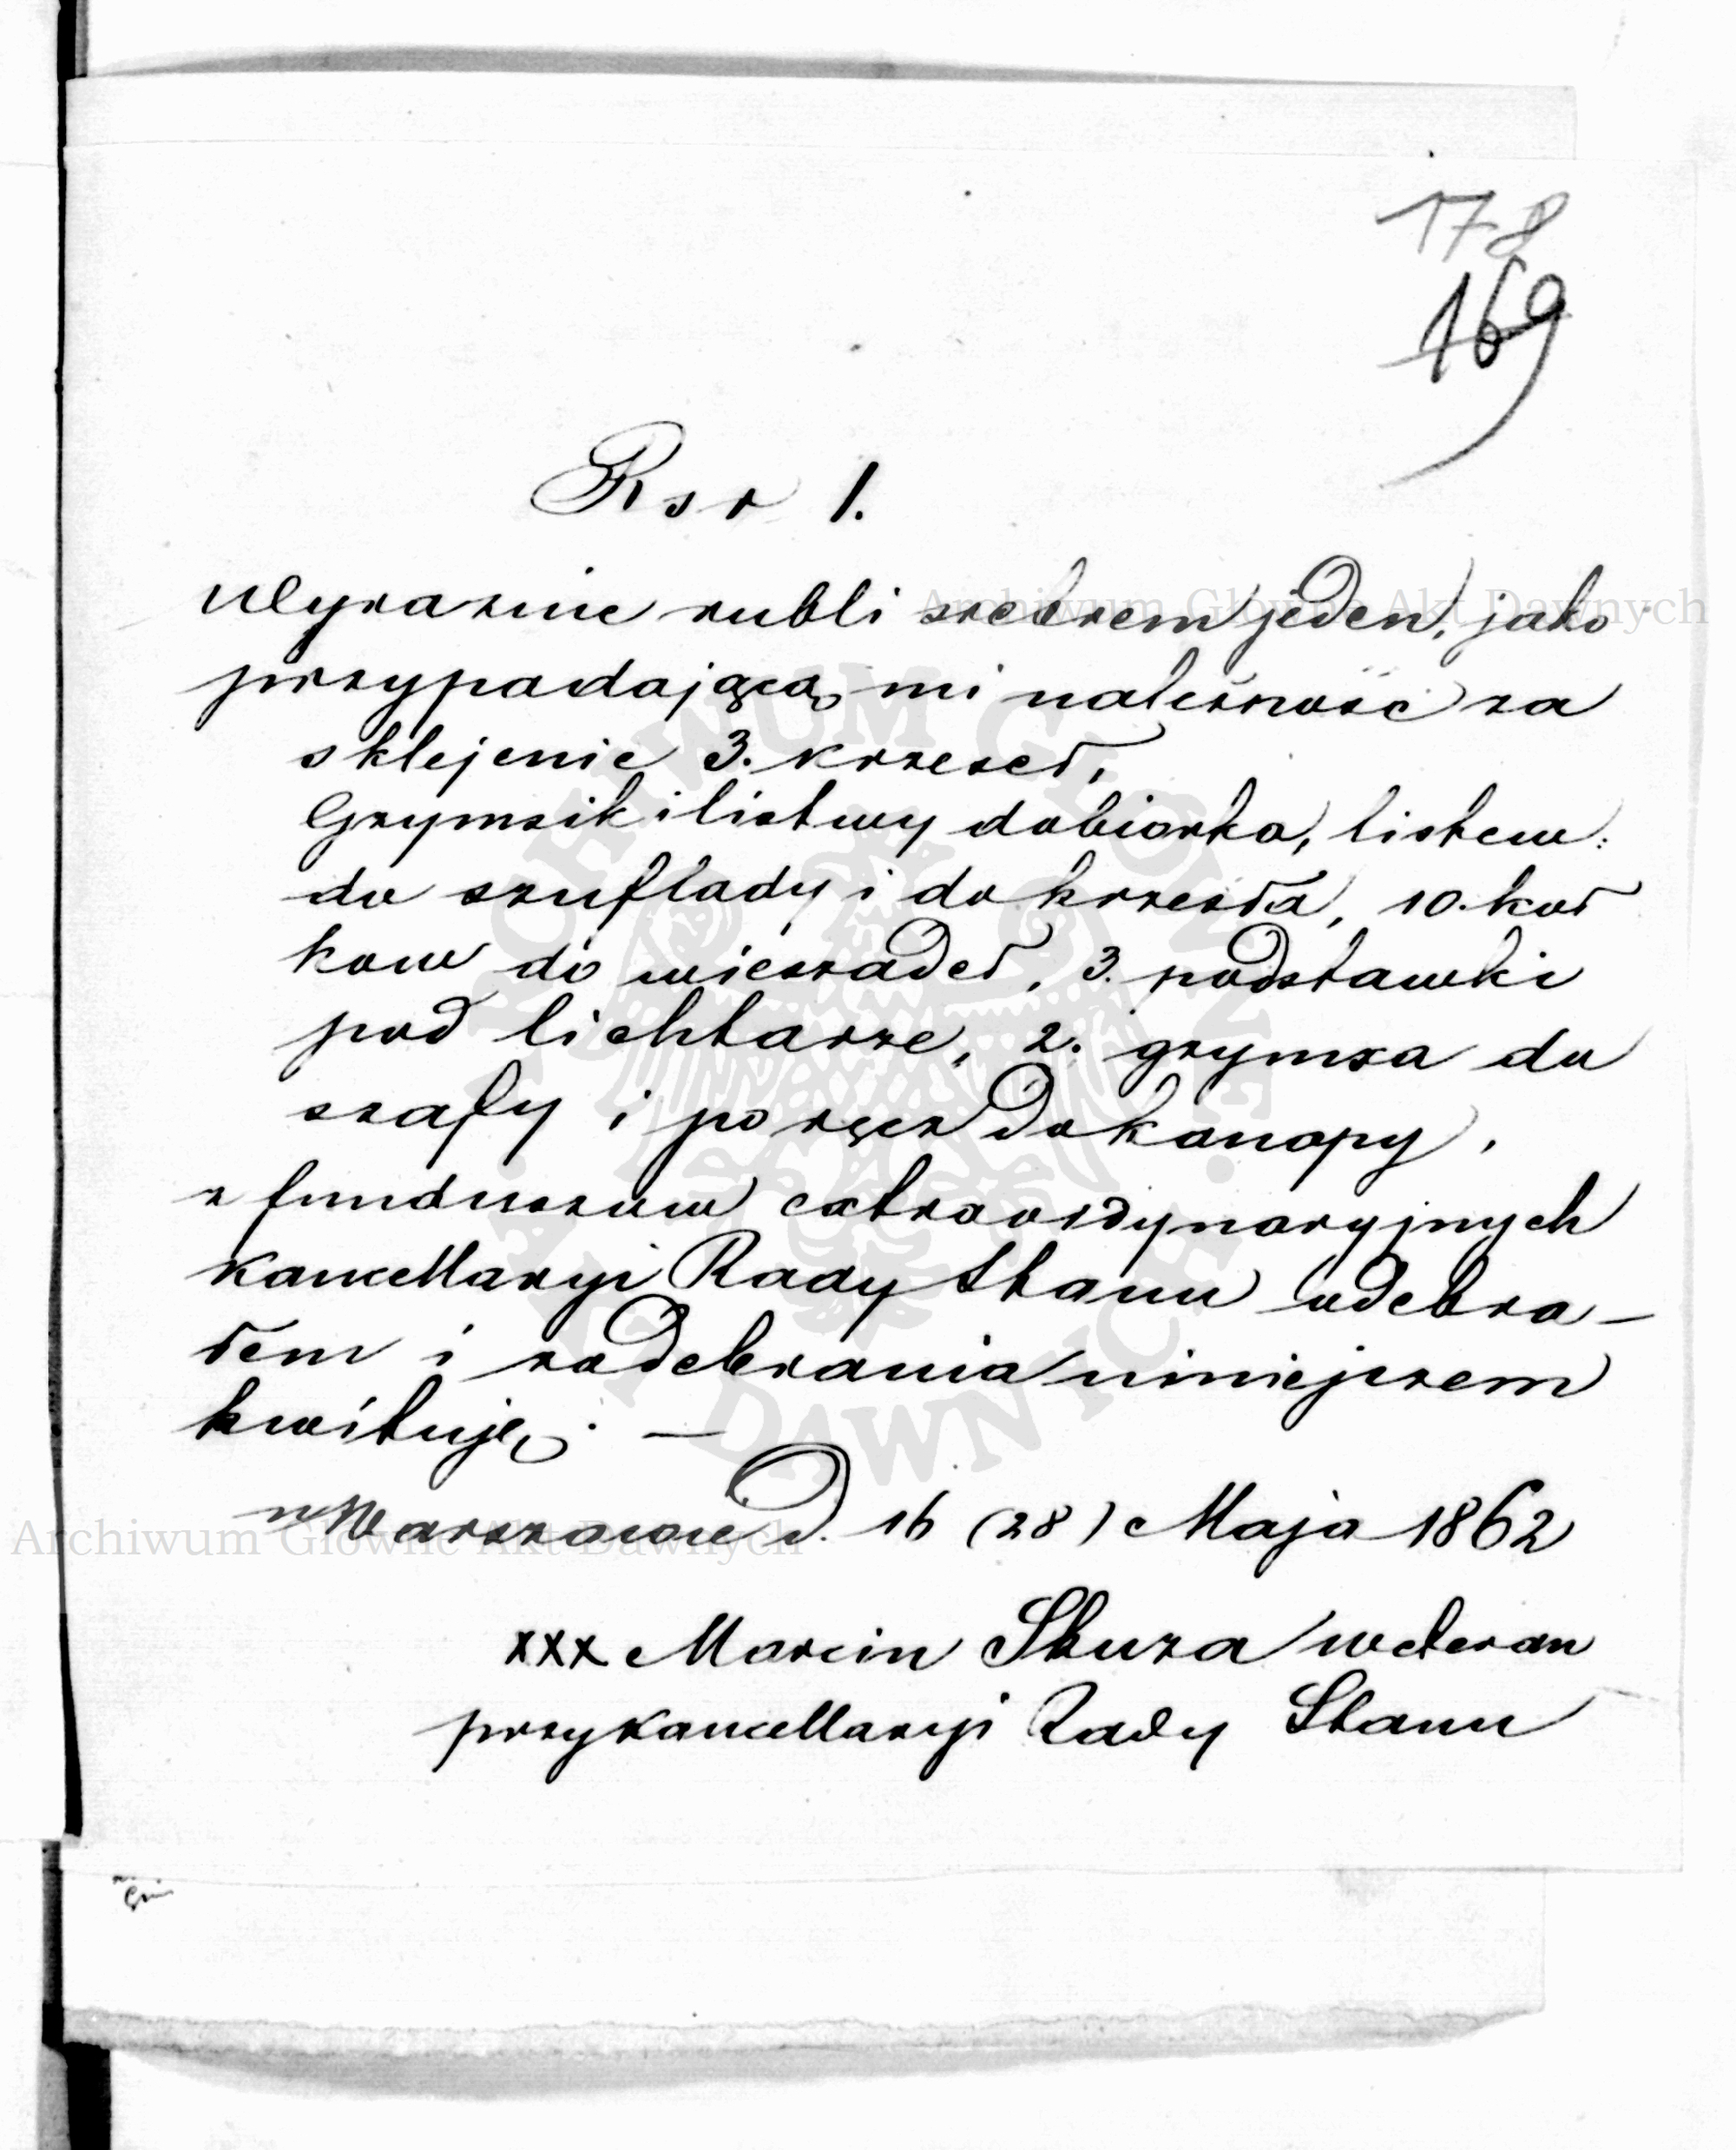 178
169
Rsr 1.
Wyraznie rubli srebrem jeden, jako
przypadającą mi należność za
sklejenie 3. krzeseł,
Gzymsik i listwy dobiorka, listew:
do szuflady i do krzesła, 10. koł
kow do wieszadeł, 3. podstawki
pod lichtarze, 2. gzymsa do
szafy i poręcz do kanapy,
z funduszow extraordynaryjnych
Kancellaryi Rady Stanu odebra-
łem i z odebrania niniejszem
kwituję. —
w Warszawie d. 16 (28) Maja 1862
xxx Marcin Skura weteran
przy Kancellaryi Rady Stanu
Archiwum Główne Akt Dawnych
Archiwum Główne Akt Dawnych
ARCHIWUM GŁÓWNE · AKT DAWNYCH ·